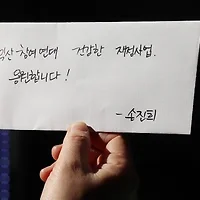 익산참여연대 건강한 재정사업.
응원합니다!
- 송진희